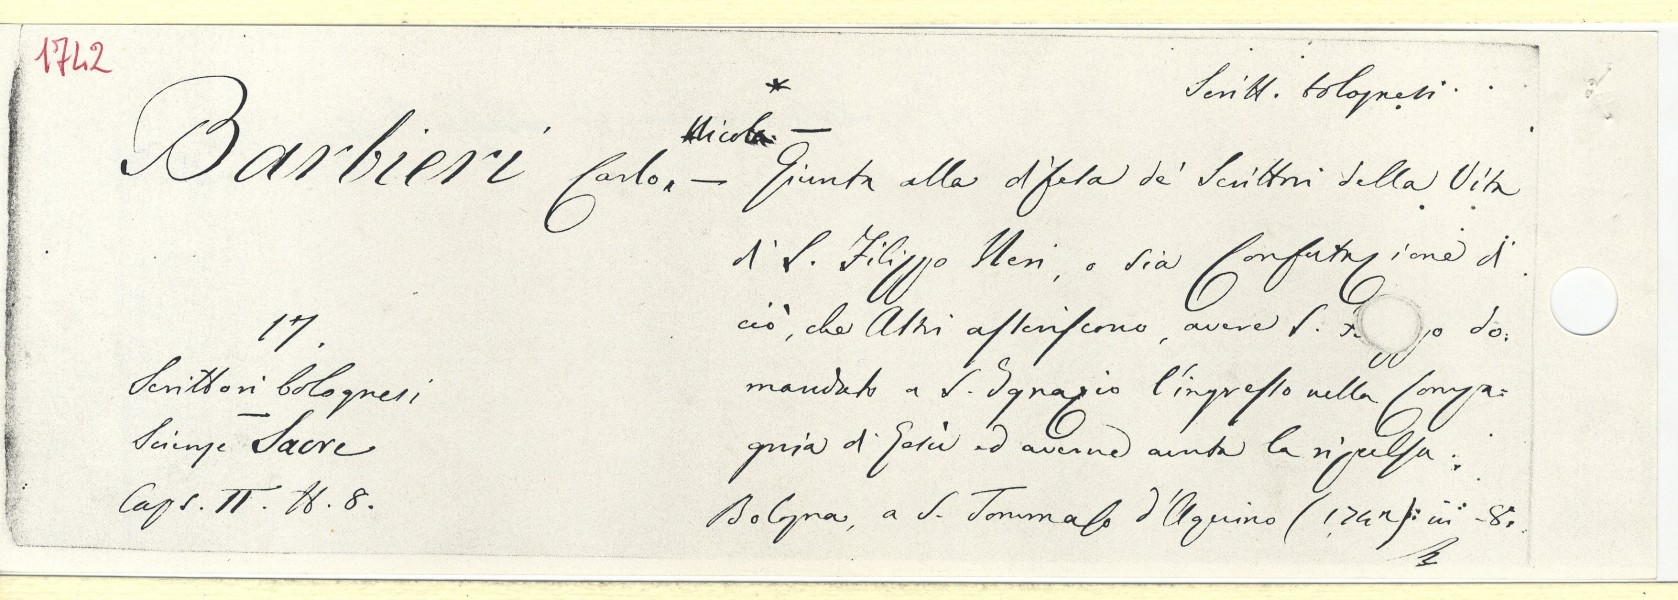 1742
Scritt. bolognesi.
*
Nicola. —
Barbieri Carlo, — Giunta alla difesa de' Scrittori della Vita
di S. Filippo Neri, o sia Confutazione di
ciò, che Altri asseriscono, avere S. do:
mandato a S. Ignazio l'ingresso nella Compa=
gnia di Gesù ed averne avuta la ripulsa.
Bologna, a S. Tommaso d'Aquino (1742): in -8°.
17.
Scrittori bolognesi
—
Scienze Sacre
Caps. II. N. 8.